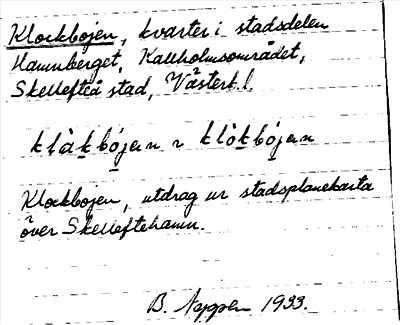 Klockbojen, kvarter i stadsdelen
Hamnberget, Kallholmsområdet,
Skellefteå stad, Västerb. l.
klàkbójen ~ klòkbójen
Klockbojen, utdrag ur stadsplanekarta
över Skelleftehamn.
B. 1933.